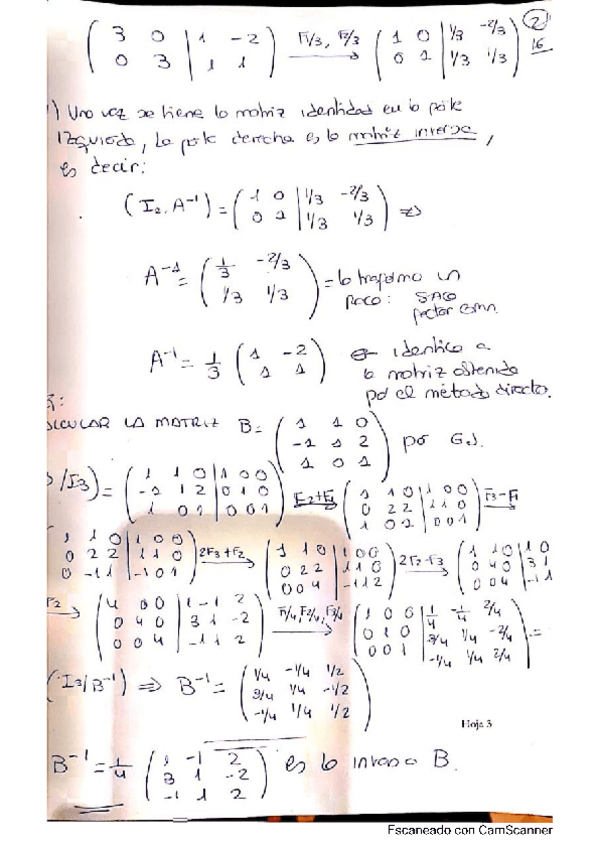 ( 3 0 | 1 -2 ; 0 3 | 1 1 ) F1/3, F2/3 → ( 1 0 | 1/3 -2/3 ; 0 1 | 1/3 1/3 ) 2 16
1) Una vez se tiene la matriz identidad en la parte
izquierda, la parte derecha es la matriz inversa,
es decir:
( I2, A⁻¹ ) = ( 1 0 | 1/3 -2/3 ; 0 1 | 1/3 1/3 ) ⇒
A⁻¹ = ( 1/3 -2/3 ; 1/3 1/3 ) = lo trasformo un
poco: SACO
factor comn.
A⁻¹ = 1/3 ( 1 -2 ; 1 1 ) identica a
la matriz obtenida
por el método directo.
LA MATRIZ B = ( 1 1 0 ; -1 1 2 ; 1 0 1 ) por G.J.
/I3) = ( 1 1 0 | 1 0 0 ; -1 1 2 | 0 1 0 ; 1 0 1 | 0 0 1 ) F2+F1 → ( 1 1 0 | 1 0 0 ; 0 2 2 | 1 1 0 ; 1 0 1 | 0 0 1 ) F3-F1
1 1 0 | 1 0 0 ; 0 2 2 | 1 1 0 ; 0 -1 1 | -1 0 1 ) 2F3+F2 → ( 1 1 0 | 1 0 0 ; 0 2 2 | 1 1 0 ; 0 0 4 | -1 1 2 ) 2F2-F3 → ( 1 1 0 | 1 0 ; 0 4 0 | 3 1 ; 0 0 4 | -1 1
F2 → ( 4 0 0 | 1 -1 2 ; 0 4 0 | 3 1 -2 ; 0 0 4 | -1 1 2 ) F1/4, F2/4, F3/4 → ( 1 0 0 | 1/4 -1/4 2/4 ; 0 1 0 | 3/4 1/4 -2/4 ; 0 0 1 | -1/4 1/4 2/4 ) =
( I3/B⁻¹ ) ⇒ B⁻¹ = ( 1/4 -1/4 1/2 ; 3/4 1/4 -1/2 ; -1/4 1/4 1/2 )
Hoja 3
B⁻¹ = 1/4 ( 1 -1 2 ; 3 1 -2 ; -1 1 2 ) es la inversa B.
Escaneado con CamScanner